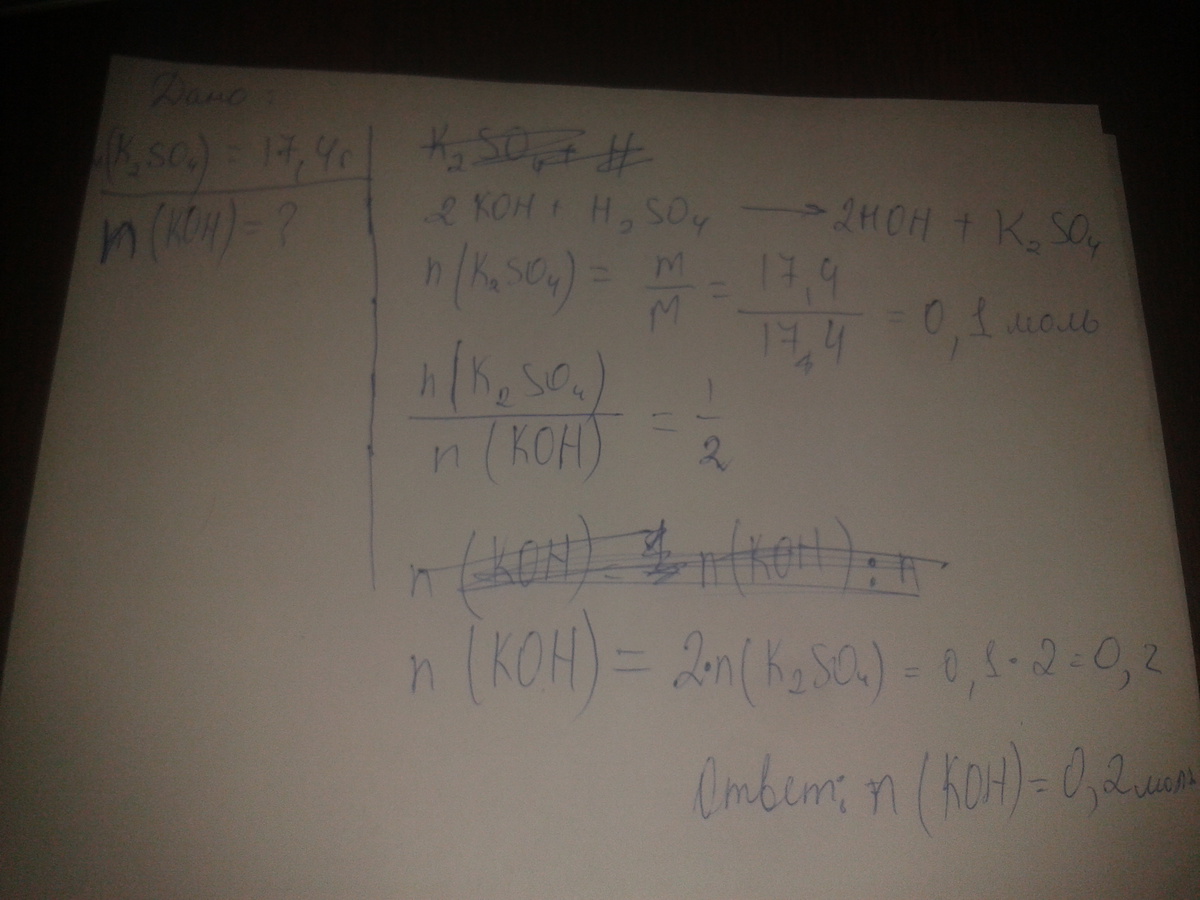 Дано:
(K₂SO₄) = 17,4г
n (KOH) = ?
K₂SO₄ + H
2 KOH + H₂SO₄ → 2HOH + K₂SO₄
n (K₂SO₄) = m/M = 17,4/17,4 = 0,1 моль
n (K₂SO₄)/n (KOH) = 1/2
n (KOH) = n (KOH) : n
n (KOH) = 2·n(K₂SO₄) = 0,1·2=0,2
Ответ: n (KOH) = 0,2 моль